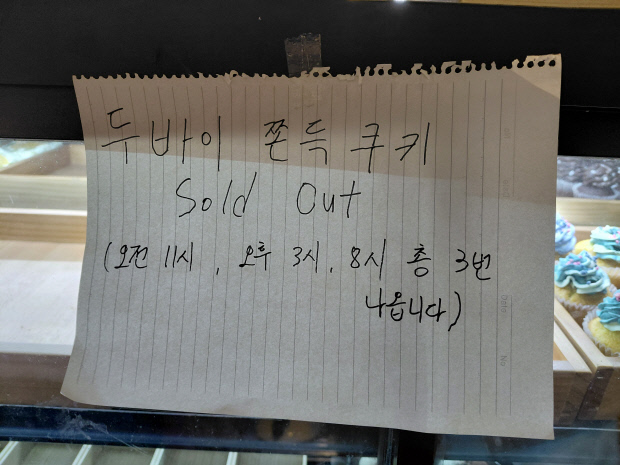 두바이 쫀득 쿠키
Sold Out
(오전 11시, 오후 3시, 8시 총 3번
나옵니다)